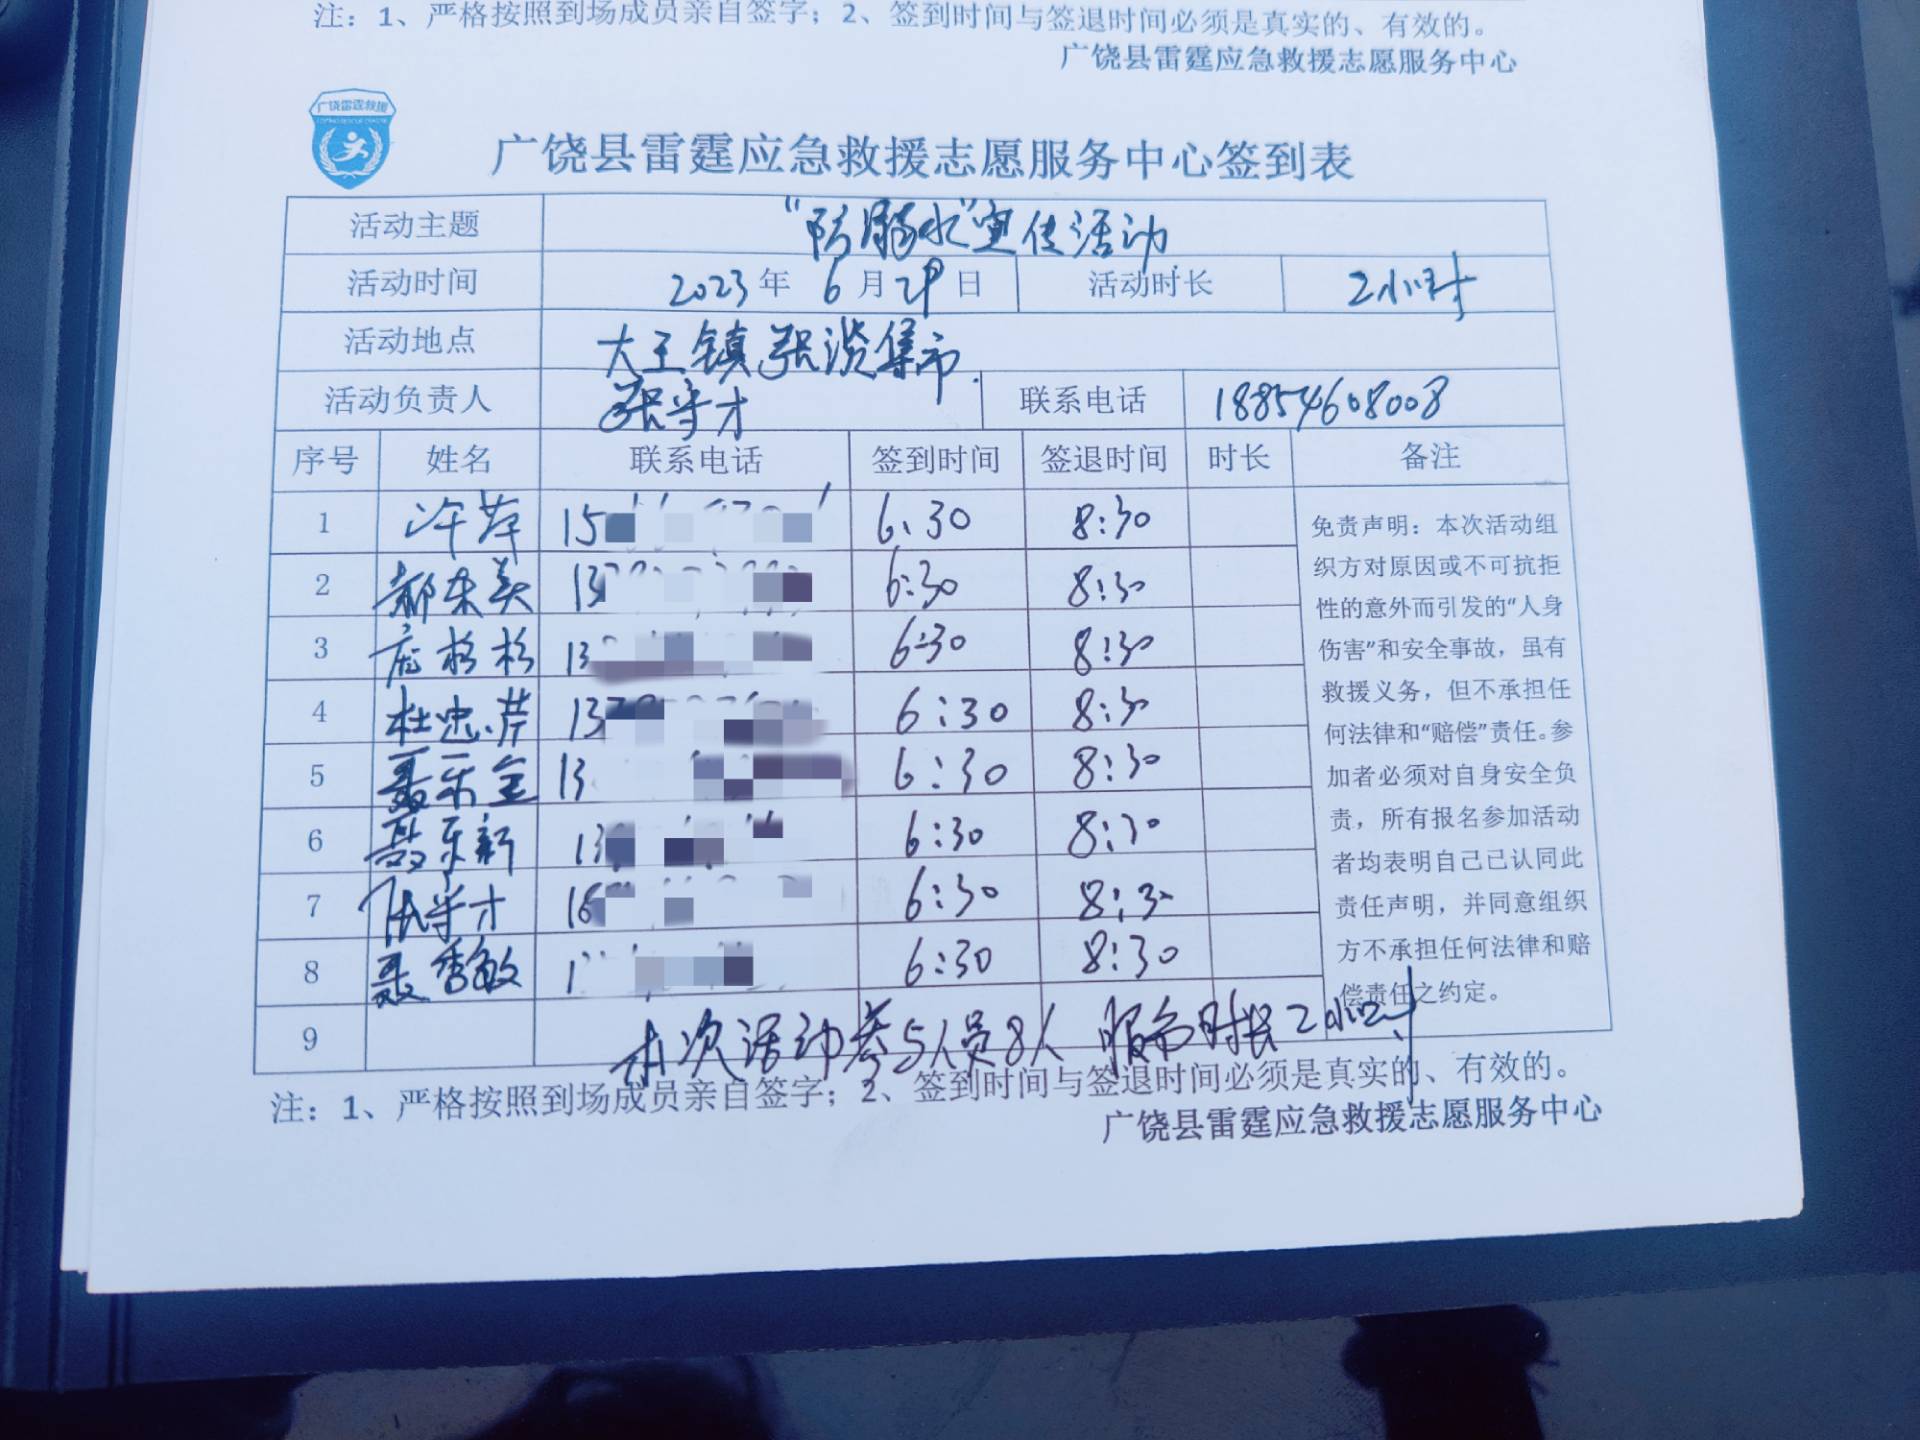 注：1、严格按照到场成员亲自签字；2、签到时间与签退时间必须是真实的、有效的。
广饶县雷霆应急救援志愿服务中心
广饶雷霆救援
广饶县雷霆应急救援志愿服务中心签到表
活动主题 “防溺水”宣传活动
活动时间 2023年 6月 29日 活动时长 2小时
活动地点 大王镇张淡集市
活动负责人 张守才 联系电话 18854608008
序号 姓名 联系电话 签到时间 签退时间 时长 备注
1 许萍 15 6:30 8:30
2 郝东美 13 6:30 8:30
3 庞杉杉 13 6:30 8:30
4 杜忠芹 13 6:30 8:30
5 聂乐全 13 6:30 8:30
6 聂乐新 13 6:30 8:30
7 张守才 18 6:30 8:30
8 聂秀敏 1 6:30 8:30
9 本次活动参与人员8人 服务时长2小时
免责声明：本次活动组
织方对原因或不可抗拒
性的意外而引发的“人身
伤害”和安全事故，虽有
救援义务，但不承担任
何法律和“赔偿”责任。参
加者必须对自身安全负
责，所有报名参加活动
者均表明自己已认同此
责任声明，并同意组织
方不承担任何法律和赔
偿责任之约定。
注：1、严格按照到场成员亲自签字；2、签到时间与签退时间必须是真实的、有效的。
广饶县雷霆应急救援志愿服务中心